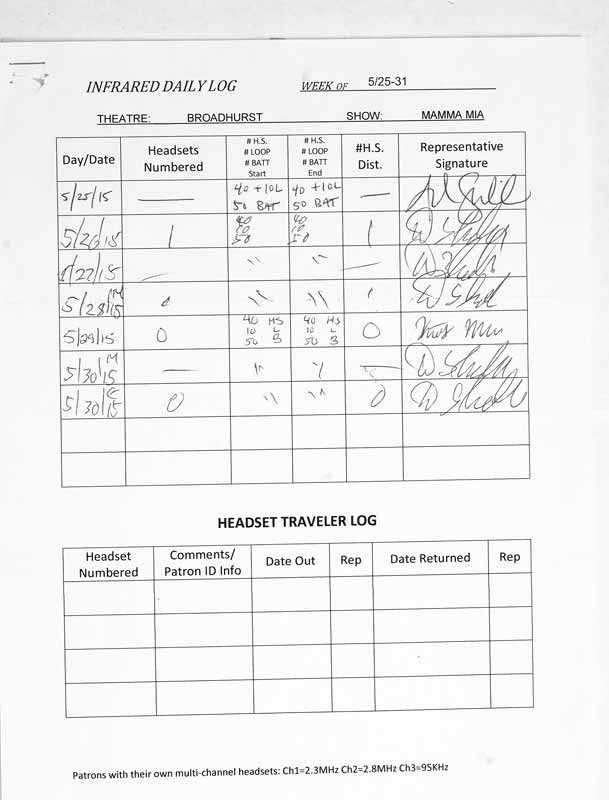 INFRARED DAILY LOG WEEK OF 5/25-31
THEATRE: BROADHURST SHOW: MAMMA MIA
Day/Date Headsets Numbered # H.S. # LOOP # BATT Start # H.S. # LOOP # BATT End #H.S. Dist. Representative Signature
5/25/15 — 40 +10L 50 BAT 40 +10L 50 BAT —
5/26/15 1 40 10 50 40 10 50 1
5/27/15 — " " —
5/28/15 " "
5/29/15 0 40 HS 10 L 50 B 40 HS 10 L 50 B 0
5/30/15 M — " " —
5/30/15 E 0 " " 0
HEADSET TRAVELER LOG
Headset Numbered Comments/ Patron ID Info Date Out Rep Date Returned Rep
Patrons with their own multi-channel headsets: Ch1=2.3MHz Ch2=2.8MHz Ch3=95KHz